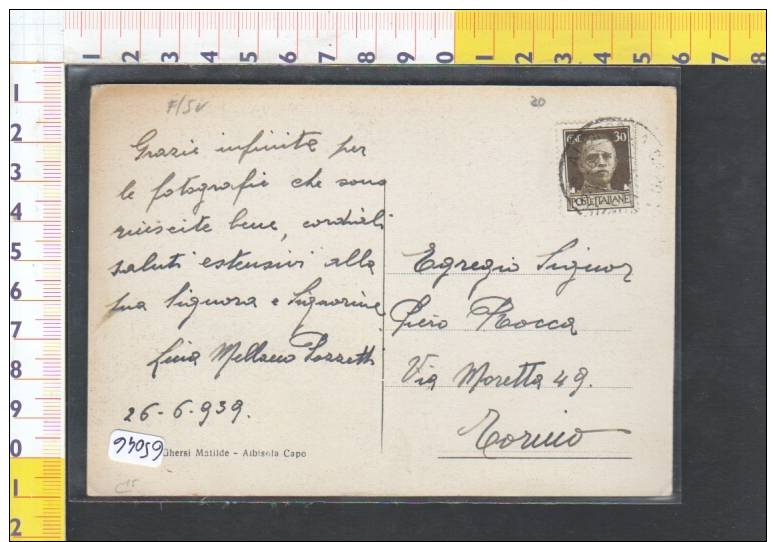 F/SV
20
Grazie infinite per
le fotografie che sono
riuscite bene, cordiali
saluti estensivi alla
sua Signora e Signorine
Lina Mellano Pozzetti
26-6-939.
Ghersi Matilde - Albisola Capo
CENT. 30
POSTE ITALIANE
Egregio Signor
Piero Rocca
Via Moretta 49.
Torino
1 2 3 4 5 6 7 8 9 0 1 2 3 4 5 6 7 8
1
2
3
4
5
6
7
8
9
0
1
2